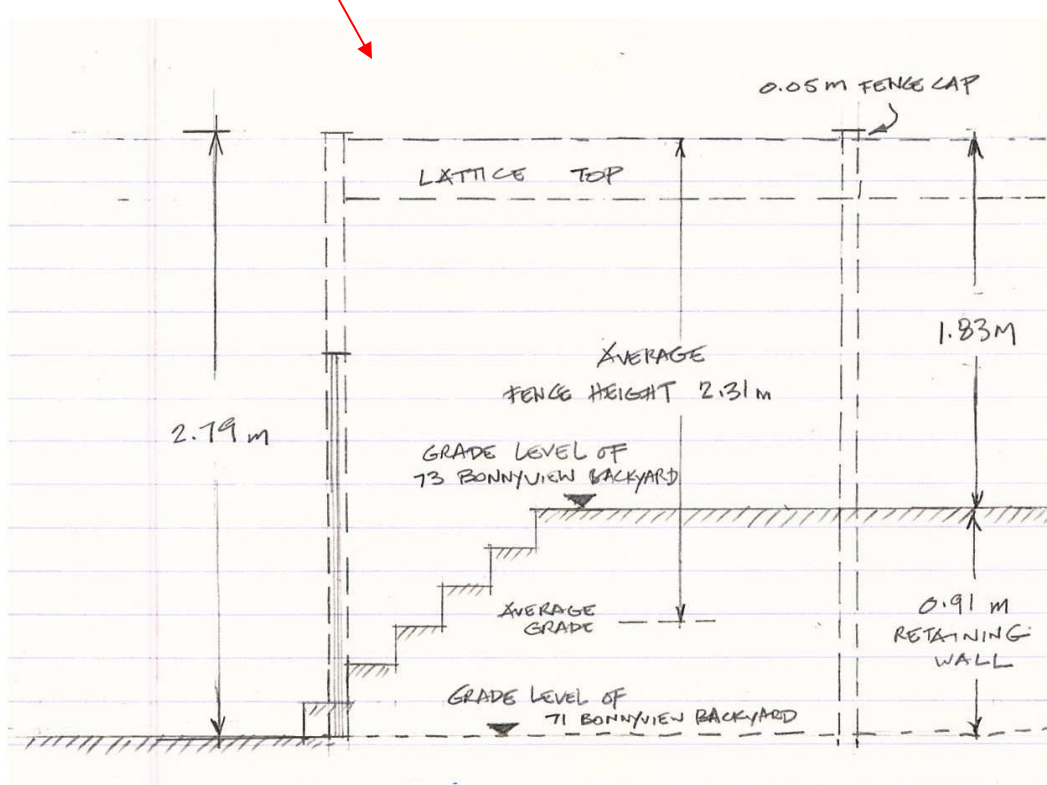 0.05M FENCE CAP
LATTICE TOP
1.83M
AVERAGE
FENCE HEIGHT 2.31m
2.79 m
GRADE LEVEL OF
73 BONNYVIEW BACKYARD
AVERAGE
GRADE
0.91 m
RETAINING
WALL
GRADE LEVEL OF
71 BONNYVIEW BACKYARD